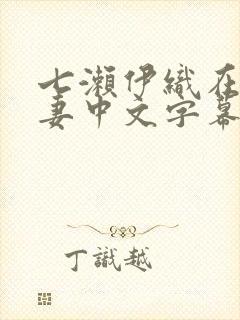 七瀨伊織在
妻中文字幕
丁識越